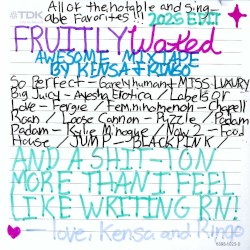 All of the notable and sing-
able Favorites!!! 2025 EDIT
TDK
FRUITLY Waked
AWESOME MIXTAPE
BY KENSA + RINGO
So Perfect - Garely human + MISS LUXURY
Big Juicy - Ayesha Erotica / Labels Or
Love - Fergie / Femininomenon - Chapell
Roan / Loose Cannon - Puzzle / Padam
Padam - Kylie Minogue / Now 2 - Foot
House / JUMP - BLACKPINK /
AND A SHIT-TON
MORE THAN I FEEL
LIKE WRITING RN!
- love, Kensa and Ringo